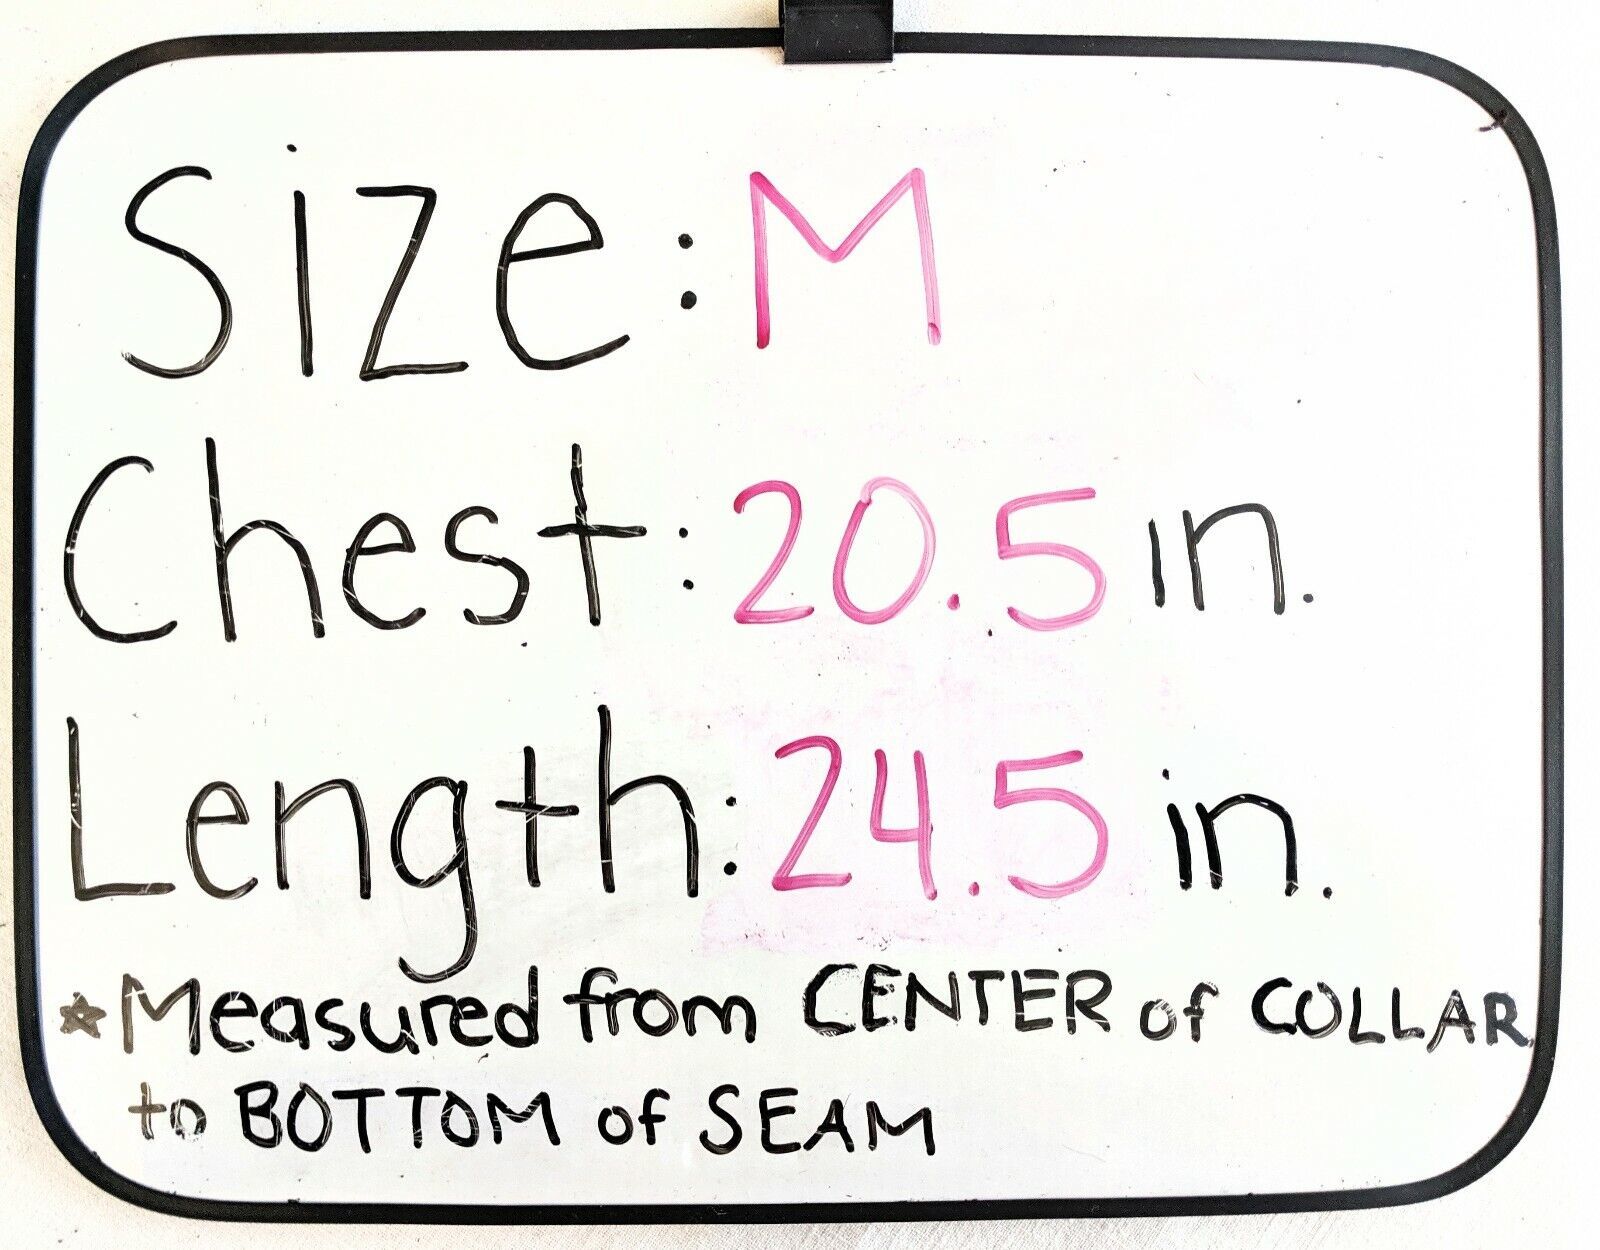 Size: M
Chest: 20.5 in.
Length: 24.5 in.
☆Measured from CENTER of COLLAR
to BOTTOM of SEAM